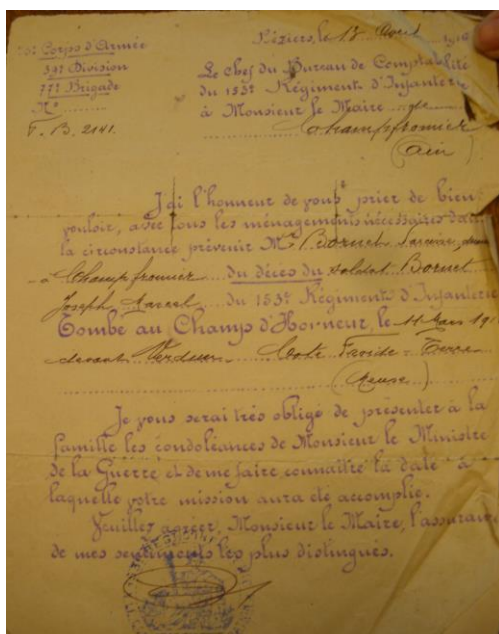 Corps d'Armée
39e Division
77e Brigade
No
F. B. 2141.
Béziers, le 18 Avril 191
Le Chef du Bureau de Comptabilité
du 153e Régiment d'Infanterie
à Monsieur le Maire de
Champfromier
(Ain)
J'ai l'honneur de vous prier de bien
vouloir, avec tous les ménagements nécessaires dans
la circonstance prévenir Mr Bornet
à Champfromier du décès du soldat Bornet
Joseph Marcel du 153e Régiment d'Infanterie
Tombé au Champ d'Horneur, le 11 Mars 191
devant Verdun Cote Froide Terre
(Meuse)
Je vous serai très obligé de présenter à la
famille les condoléances de Monsieur le Ministre
de la Guerre et de me faire connaître la date à
laquelle votre mission aura été accomplie.
Veuillez agréer, Monsieur le Maire, l'assuran
de mes sentiments les plus distingués.